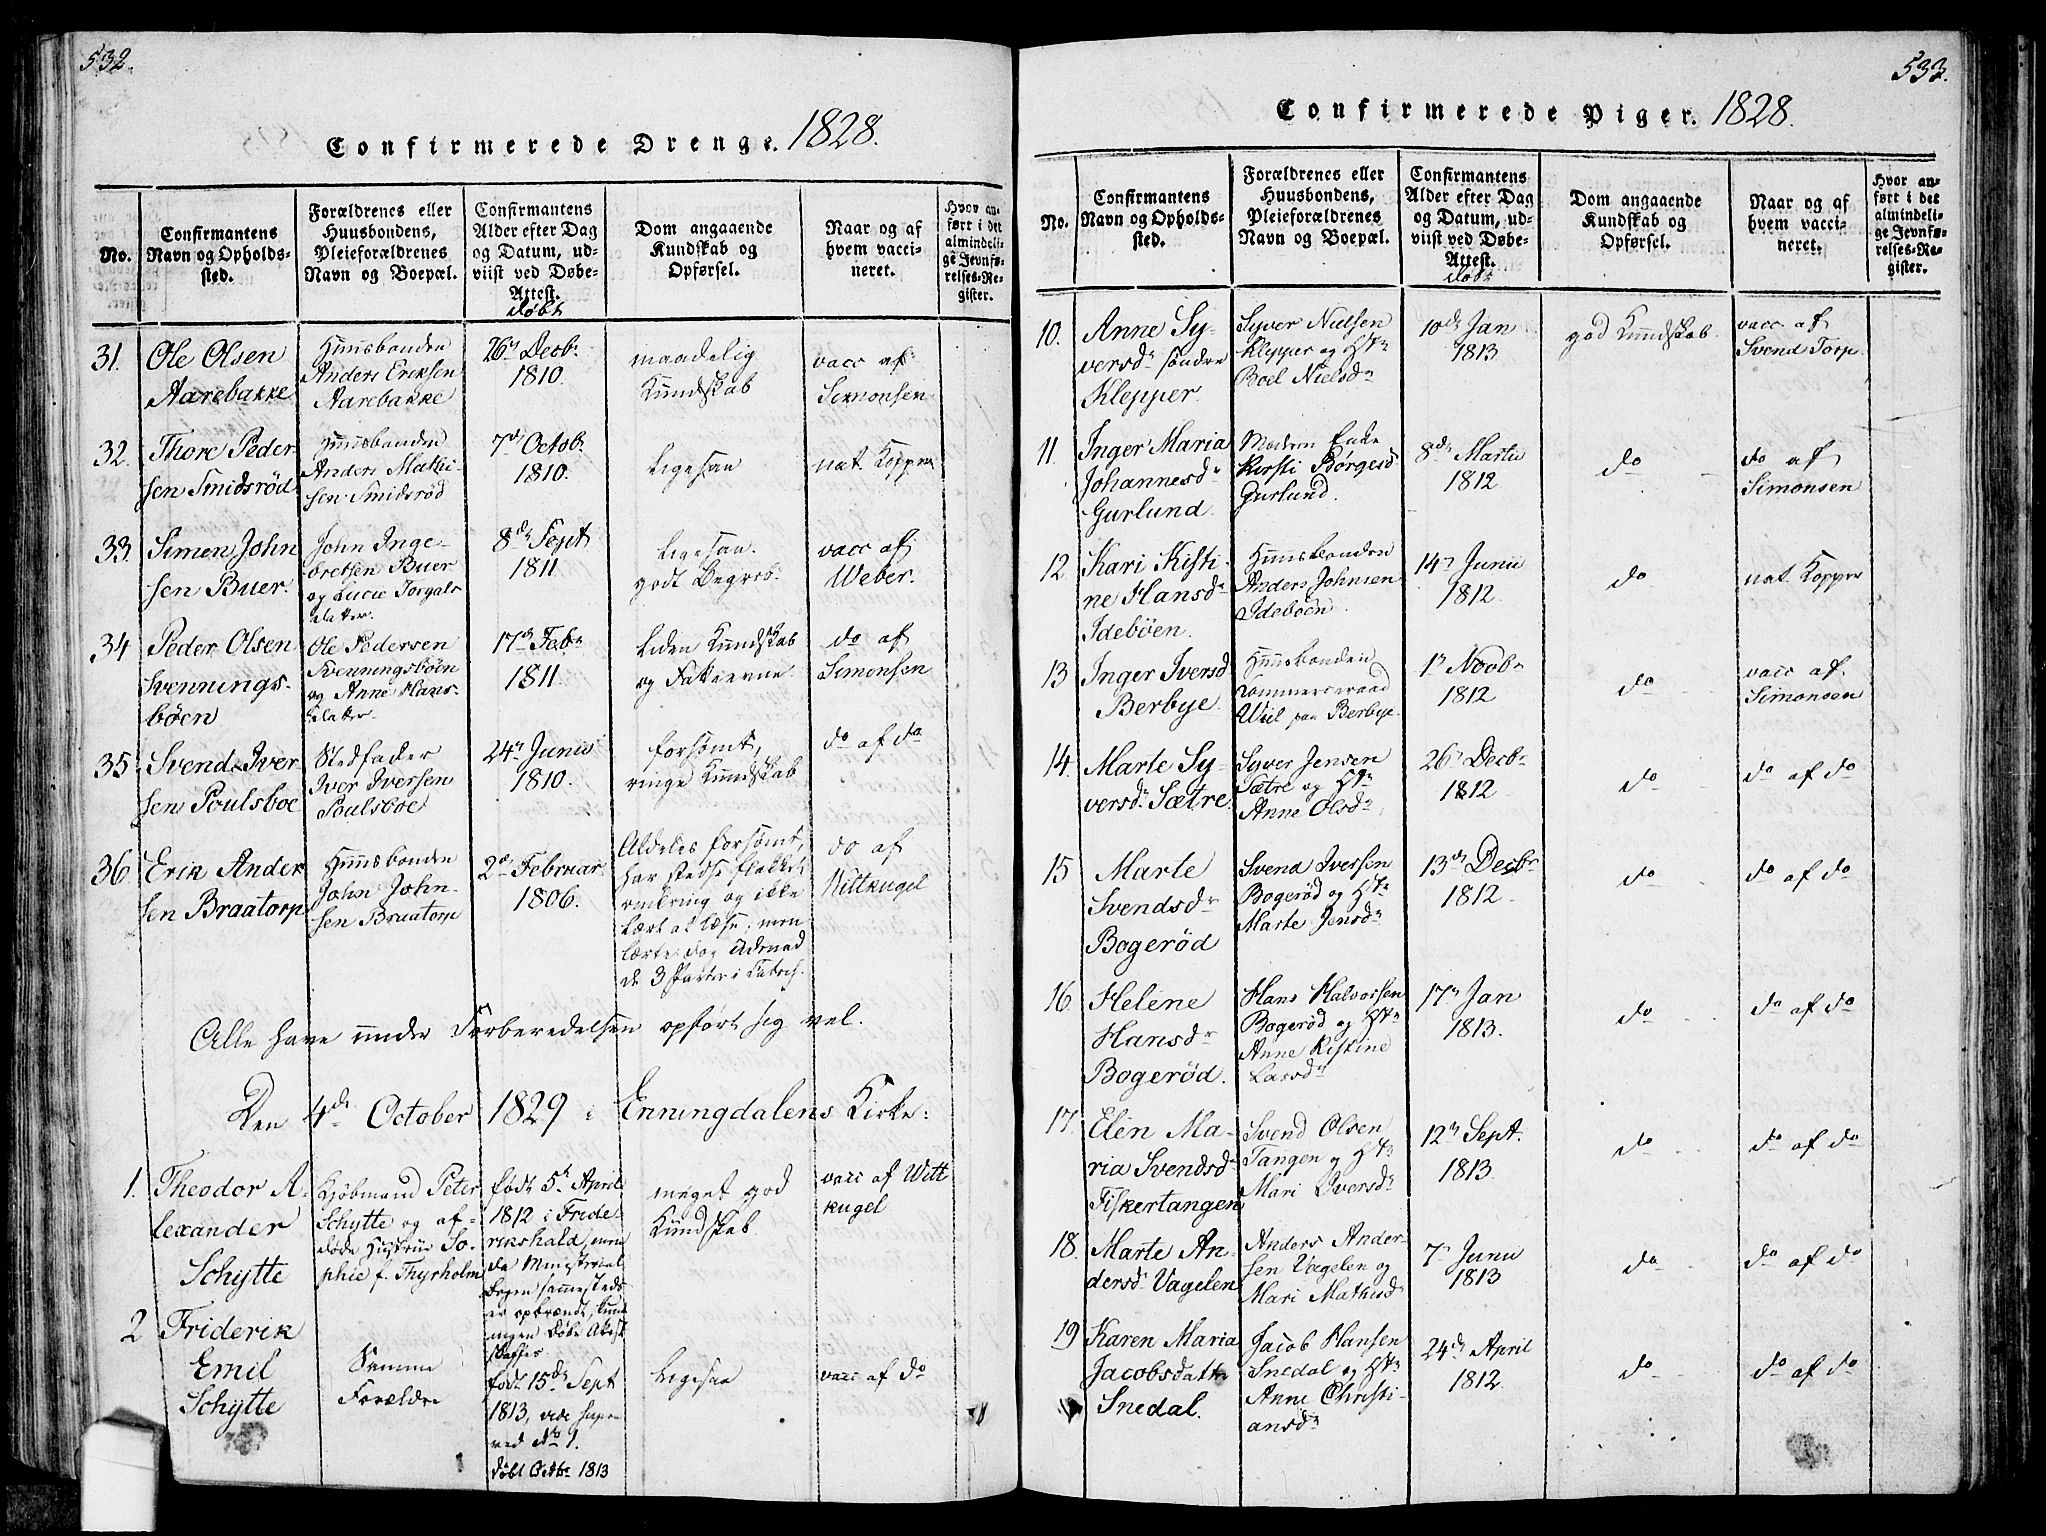 532.
Confirmerede Drenge. 1828.
No.
Confirmantens
Navn og Opholds-
sted.
Forældrenes eller
Huusbondens,
Pleieforældrenes
Navn og Boepæl.
Confirmantens
Alder efter Dag
og Datum, ud-
viist ved Døbe-
Attest.
døbt
Dom angaaende
Kundskab og
Opførsel.
Naar og af
hvem vacci-
neret.
Hvor an-
ført i det
almindeli-
ge Jevnfø-
relses-Re-
gister.
31.
Ole Olsen
Aarebakke
Huusbonden
Anders Eriksen
Aarebakke
26n Decbr
1810.
maadelig
Kundskab
vacc af
Simonsen
32.
Thore Peder-
sen Smidsrød
Huusbonden
Anders Mathi-
sen Smidsrød
7d Octobr
1810.
Ligesaa
nat. Kopper
33.
Simen John
sen Buer.
John Inge-
bretsen Buer
og Lucie Torgals
datter.
8de Sept
1811
Ligesaa.
godt Begreb.
vacc af
Weber.
34
Peder Olsen
Svennings-
böen
Ole Pedersen
Svenningsböen
og Anne Hans-
datter.
17de Febr
1811.
Liden Kundskab
og Fatteevne.
do af
Simonsen
35
Svend Iver
sen Poulsboe
Stedfader
Iver Iversen
Poulsboe
24n Junii
1810.
forsømt,
ringe Kundskab
do af do
36
Erik Ander
sen Braatorp
Huusbonden
John John-
sen Braatorp
2de Februar
1806.
Aldeles forsømt,
har stedse flakket
omkring og ikke
lært at læse, men
lærte dog udenad
de 3 Parter i Catech.
do af
Wittkugel
Alle have under Forberedelsen opført sig vel.
Den 4de October 1829 i Enningdalens Kirke:
1.
Theodor A-
lexander
Schytte
Kjöbmand Peter
Schytte og af-
døde Hustrue So-
phie f. Thyrholm
født 5te April
1812 i Fride-
rikshald, men
da Ministerial
bogen sammesteds
er opbrændt, kunde
ingen Döbe Attest
skaffes.
meget god
Kundskab
vacc af Witt
kugel
2
Friderik
Emil
Schytte
Samme
Forældre
født 15de Sept
1813,
ved No 1.
döbt Octbr 1813
Ligesaa
vacc af do
533.
Confirmerede Piger. 1828.
No.
Confirmantens
Navn og Opholds-
sted.
Forældrenes eller
Huusbondens,
Pleieforældrenes
Navn og Boepæl.
Confirmantens
Alder efter Dag
og Datum, ud-
viist ved Døbe-
Attest.
døbt
Dom angaaende
Kundskab og
Opførsel.
Naar og af
hvem vacci-
neret.
Hvor an-
ført i det
almindeli-
ge Jevnfø-
relses-Re-
gister.
10.
Anne Sy-
versdr søndre
Klepper
Syver Nielsen
Klepper og Hr
Boel Nielsdr
10de Jan
1813
god Kundskab
vacc af
Svend Torp
11.
Inger Maria
Johannesdr
Gurlund
Moderen Enke
Kirsti Börgesd
Gurlund.
8de Martii
1812
do
do af
Simonsen
12
Kari Kisti-
ne Hansdr
Ideböen.
Huusbonden
Anders Johnsen
Idebøen.
14n Junii
1812.
do
nat. Kopper
13
Inger Iversd
Berbye.
Huusbonden
Commerceraad
Wiil paa Berbye.
1n Novbr
1812
do
vacc af
Simonsen
14.
Marte Sy-
versdr Sætre.
Syver Jensen
Sætre og Hr
Anne Olsdr
26n Decbr
1812
do
do af do
15
Marte
Svendsdr
Bogerød
Svend Iversen
Bogerød og Hr
Marte Jensdr
13de Decbr
1812.
do
do af do
16
Helene
Hansdr
Bogerød.
Hans Halvorsen
Bogerød og Hr
Anne Kistine
Larsdr
17n Jan
1813.
do
do af do
17.
Elen Ma-
ria Svendsdr
Fiskertangen
Svend Olsen
Tangen og Hr
Mari Iversdr
12n Sept.
1813.
do
do af do
18.
Marte An-
dersdr Vagelen
Anders Ander-
sen Vagelen og
Mari Mathisdr
7n Junii
1813
do
do af do
19
Karen Maria
Jacobsdattr
Snedal.
Jacob Hansen
Snedal og Hr
Anne Christi-
ansdr
24de April
1812.
do
do af do